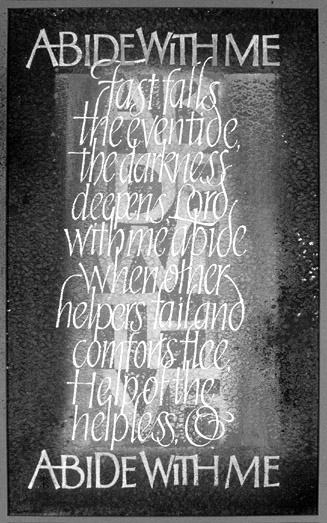 ABIDE WITH ME
Fast falls
the eventide,
the darkness
deepens, Lord
with me abide
When other
helpers fail and
comforts flee,
Help of the
helpless, O
ABIDE WITH ME